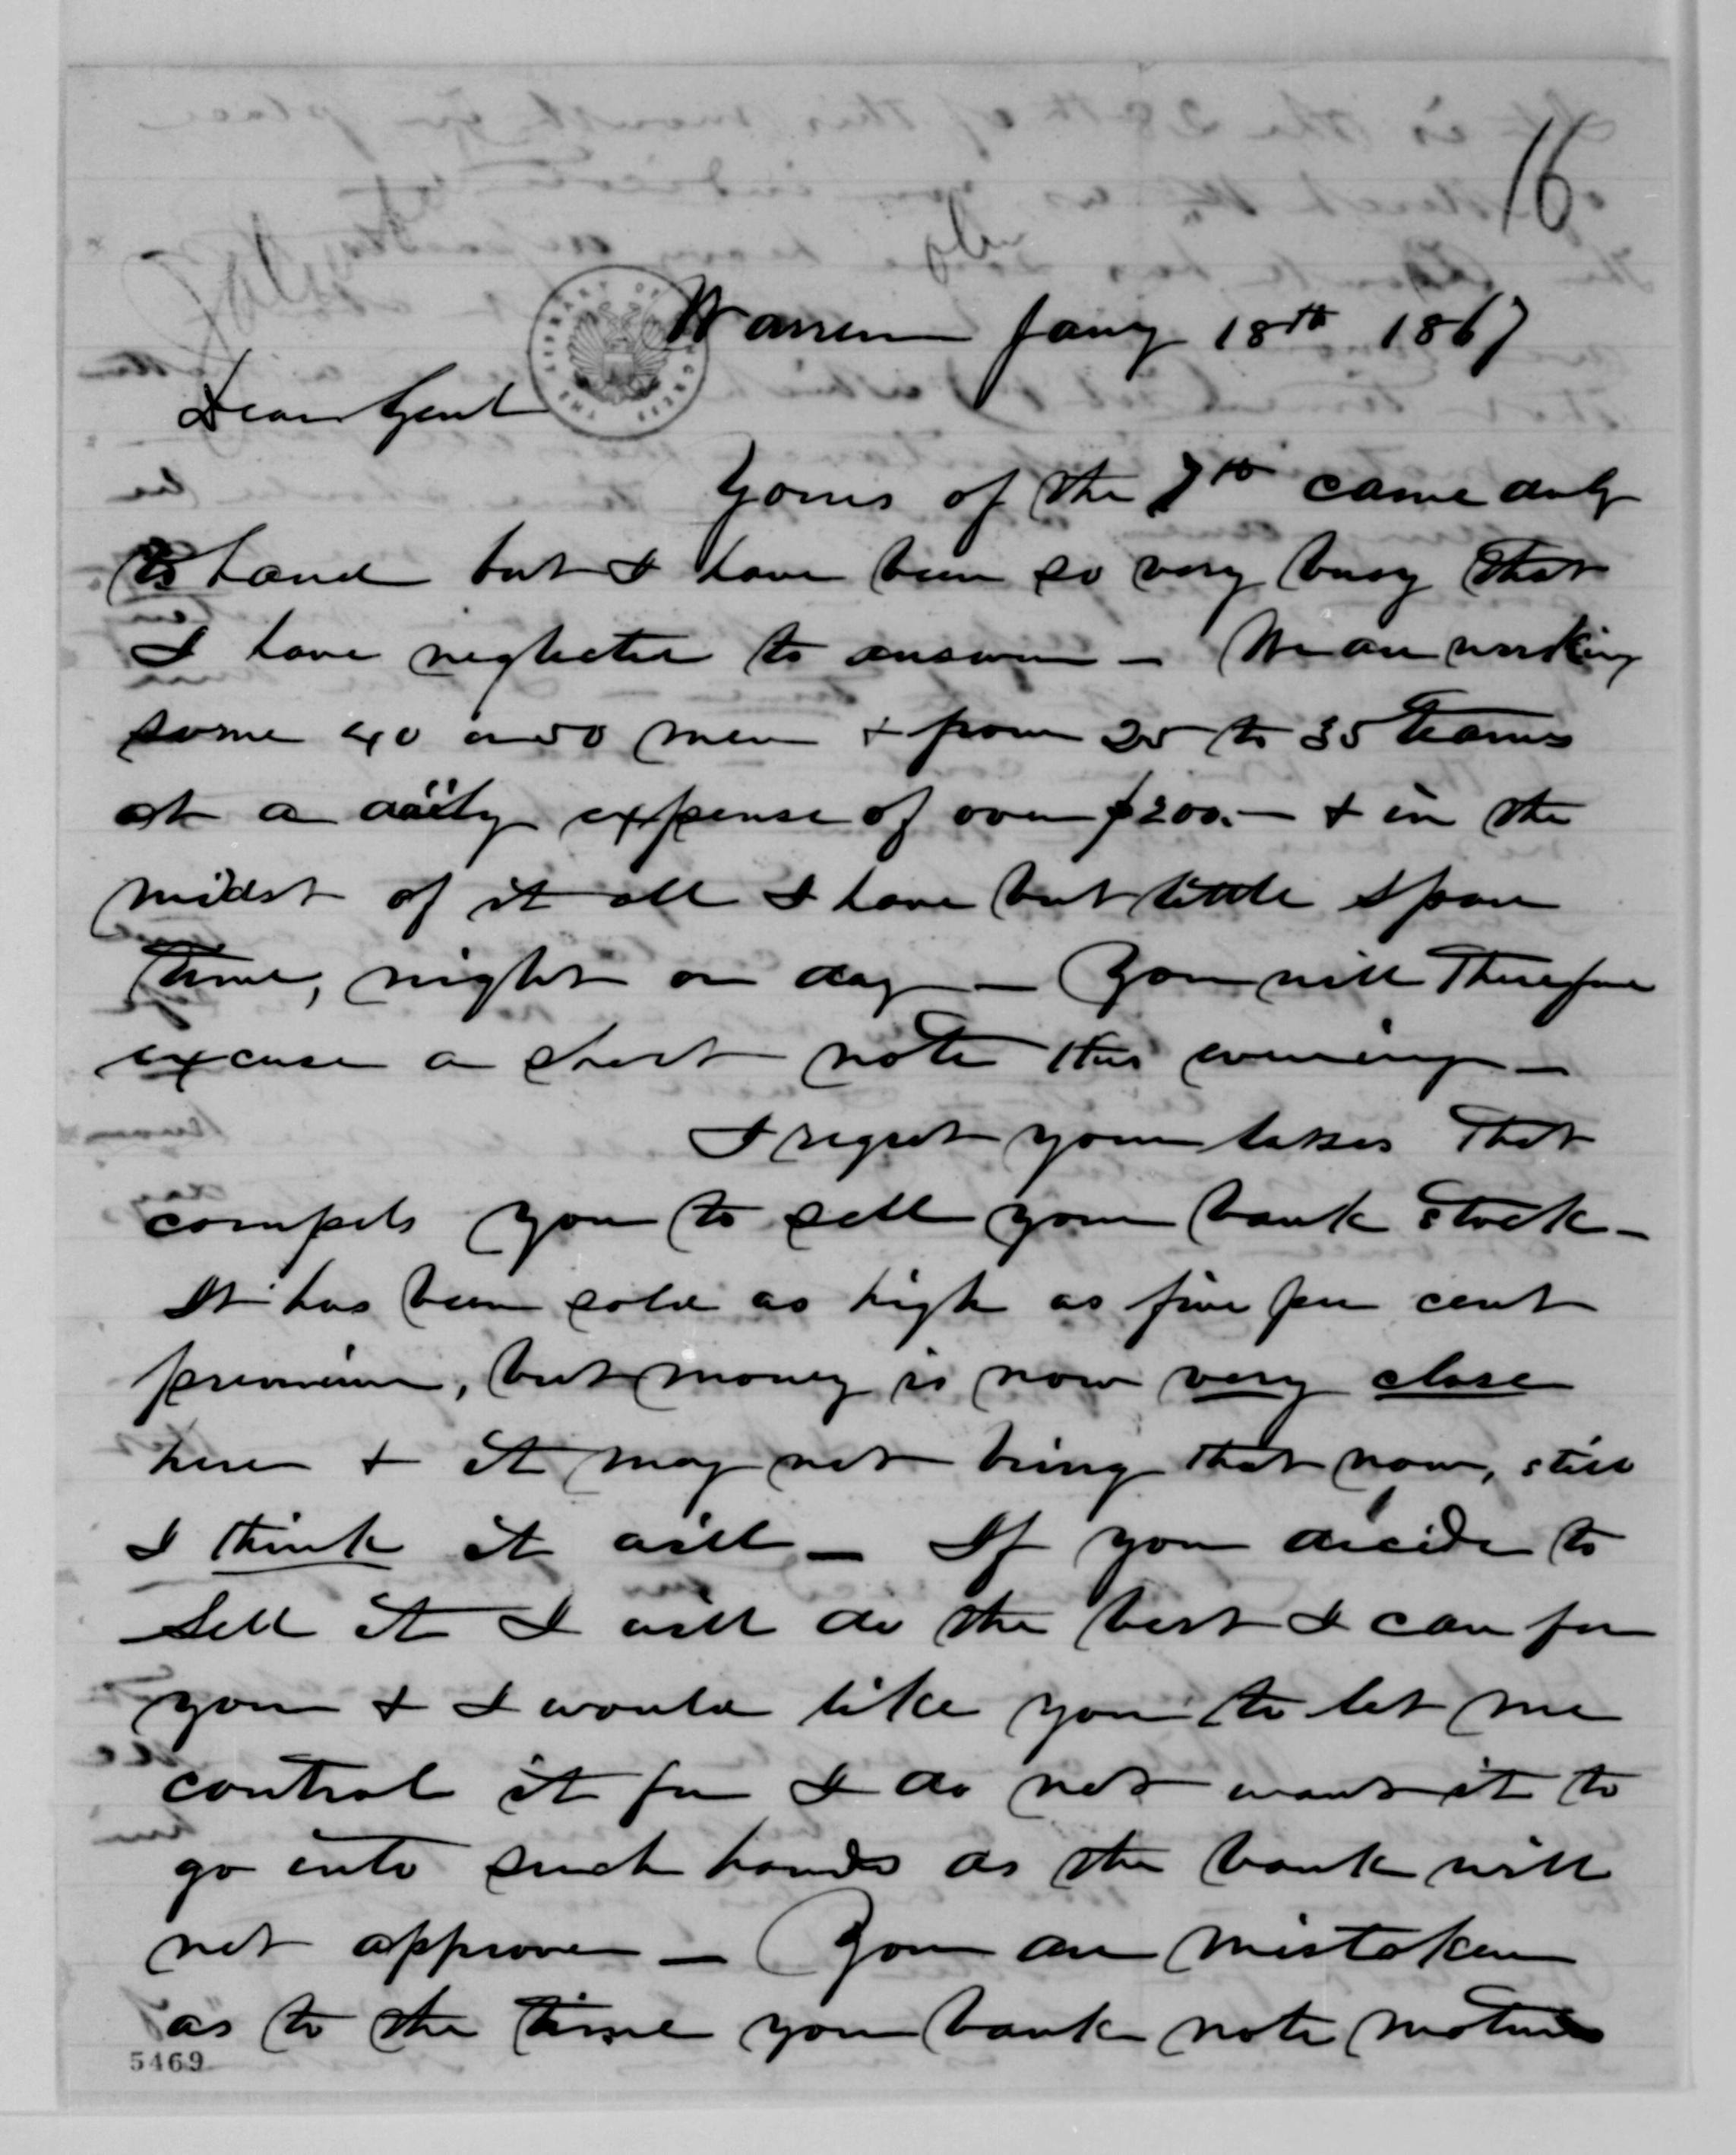 16
Warren Jany 18th 1867
Dear Genl
Yours of the 7th came duly
to hand but I have been so very busy that
I have neglected to answer — We are working
some 40 or 50 men & from 25 to 35 teams
at a daily expense of over $200.— & in the
midst of it all I have but little spare
time, night or day — You will therefore
excuse a short note this evening —
I regret your losses that
compels you to sell your bank stock —
It has been sold as high as five per cent
premium, but money is now very close
here & it may not bring that now, still
I think it will — If you decide to
sell it I will do the best I can for
you & I would like you to let me
control it for I do not want it to
go into such hands as the bank will
not approve — You are mistaken
as to the time your bank note matures
5469
THE LIBRARY OF CONGRESS